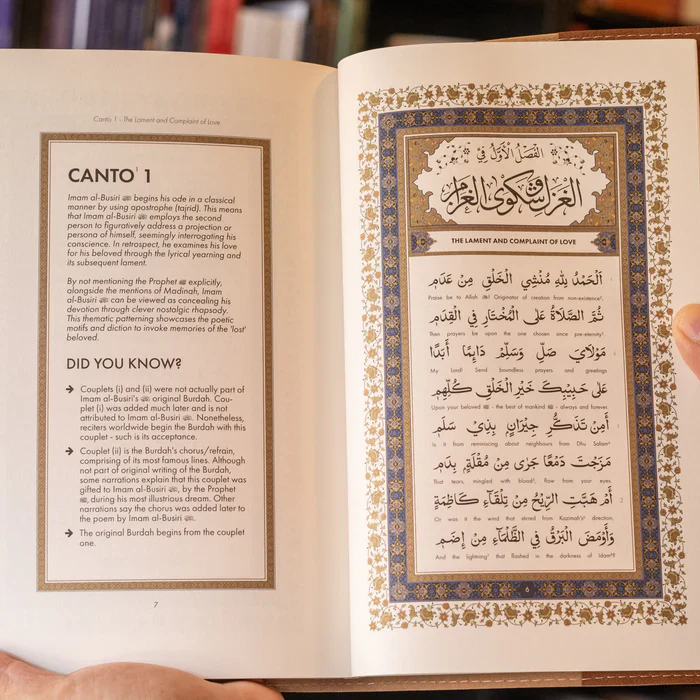 Canto 1 - The Lament and Complaint of Love
CANTO¹ 1
Imam al-Busiri begins his ode in a classical
manner by using apostrophe (tajrid). This means
that Imam al-Busiri employs the second
person to figuratively address a projection or
persona of himself, seemingly interrogating his
conscience. In retrospect, he examines his love
for his beloved through the lyrical yearning and
its subsequent lament.
By not mentioning the Prophet ﷺ explicitly,
alongside the mentions of Madinah, Imam
al-Busiri can be viewed as concealing his
devotion through clever nostalgic rhapsody.
This thematic patterning showcases the poetic
motifs and diction to invoke memories of the 'lost'
beloved.
DID YOU KNOW?
➔ Couplets (i) and (ii) were not actually part of
Imam al-Busiri's original Burdah. Cou-
plet (i) was added much later and is not
attributed to Imam al-Busiri. Nonetheless,
reciters worldwide begin the Burdah with this
couplet - such is its acceptance.
➔ Couplet (ii) is the Burdah's chorus/refrain,
comprising of its most famous lines. Although
not part of original writing of the Burdah,
some narrations explain that this couplet was
gifted to Imam al-Busiri, by the Prophet
ﷺ, during his most illustrious dream. Other
narrations say the chorus was added later to
the poem by Imam al-Busiri.
➔ The original Burdah begins from the couplet
one.
7
الفَصْلُ الأَوَّلُ فِي
الغَزَلِ وَشَكْوَى الغَرَامِ
THE LAMENT AND COMPLAINT OF LOVE
اَلْحَمْدُ لِلّٰهِ مُنْشِي الْخَلْقِ مِنْ عَدَمِ
Praise be to Allah Originator of creation from non-existence².
ثُمَّ الصَّلَاةُ عَلَى الْمُخْتَارِ فِي الْقِدَمِ
Then prayers be upon the one chosen since pre-eternity³.
مَوْلَايَ صَلِّ وَسَلِّمْ دَائِمًا أَبَدًا
My Lord! Send boundless prayers and greetings
عَلَى حَبِيبِكَ خَيْرِ الْخَلْقِ كُلِّهِمِ
Upon your beloved ﷺ - the best of mankind ﷺ - always and forever.
أَمِنْ تَذَكُّرِ جِيْرَانٍ بِذِيْ سَلَمِ
Is it from reminiscing about neighbours from Dhu Salam⁴
مَزَجْتَ دَمْعًا جَرَى مِنْ مُقْلَةٍ بِدَمِ
That tears, mingled with blood⁵, flow from your eyes.
أَمْ هَبَّتِ الرِّيْحُ مِنْ تِلْقَآءِ كَاظِمَةٍ
Or was it the wind that stirred from Kazimah's⁶ direction,
وَأَوْمَضَ الْبَرْقُ فِي الظَّلْمَآءِ مِنْ إِضَمِ
And the lightning⁷ that flashed in the darkness of Idam⁸?